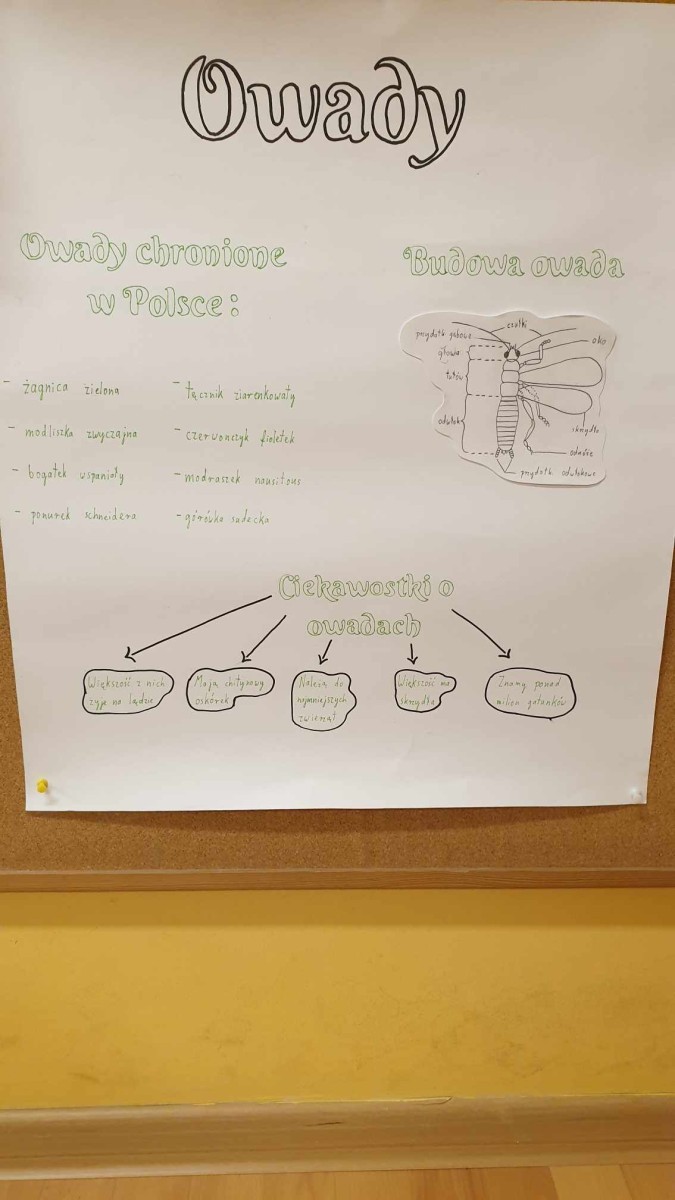 Owady
Owady chronione
w Polsce:
- żagnica zielona
- modliszka zwyczajna
- bogatek wspaniały
- ponurek schneidera
- tęcznik ziarenkowaty
- czerwończyk fioletek
- modraszek nausitous
- górówka sudecka
Budowa owada
czułki
przydatk. gębowe
oko
głowa
tułów
odwłok
skrzydło
odnóże
przydatk. odwłokowe
Ciekawostki o
owadach
Większość z nich
żyje na lądzie
Mają chitynowy
oskórek
Należą do
najmniejszych
zwierząt
Większość ma
skrzydła
Znamy ponad
milion gatunków